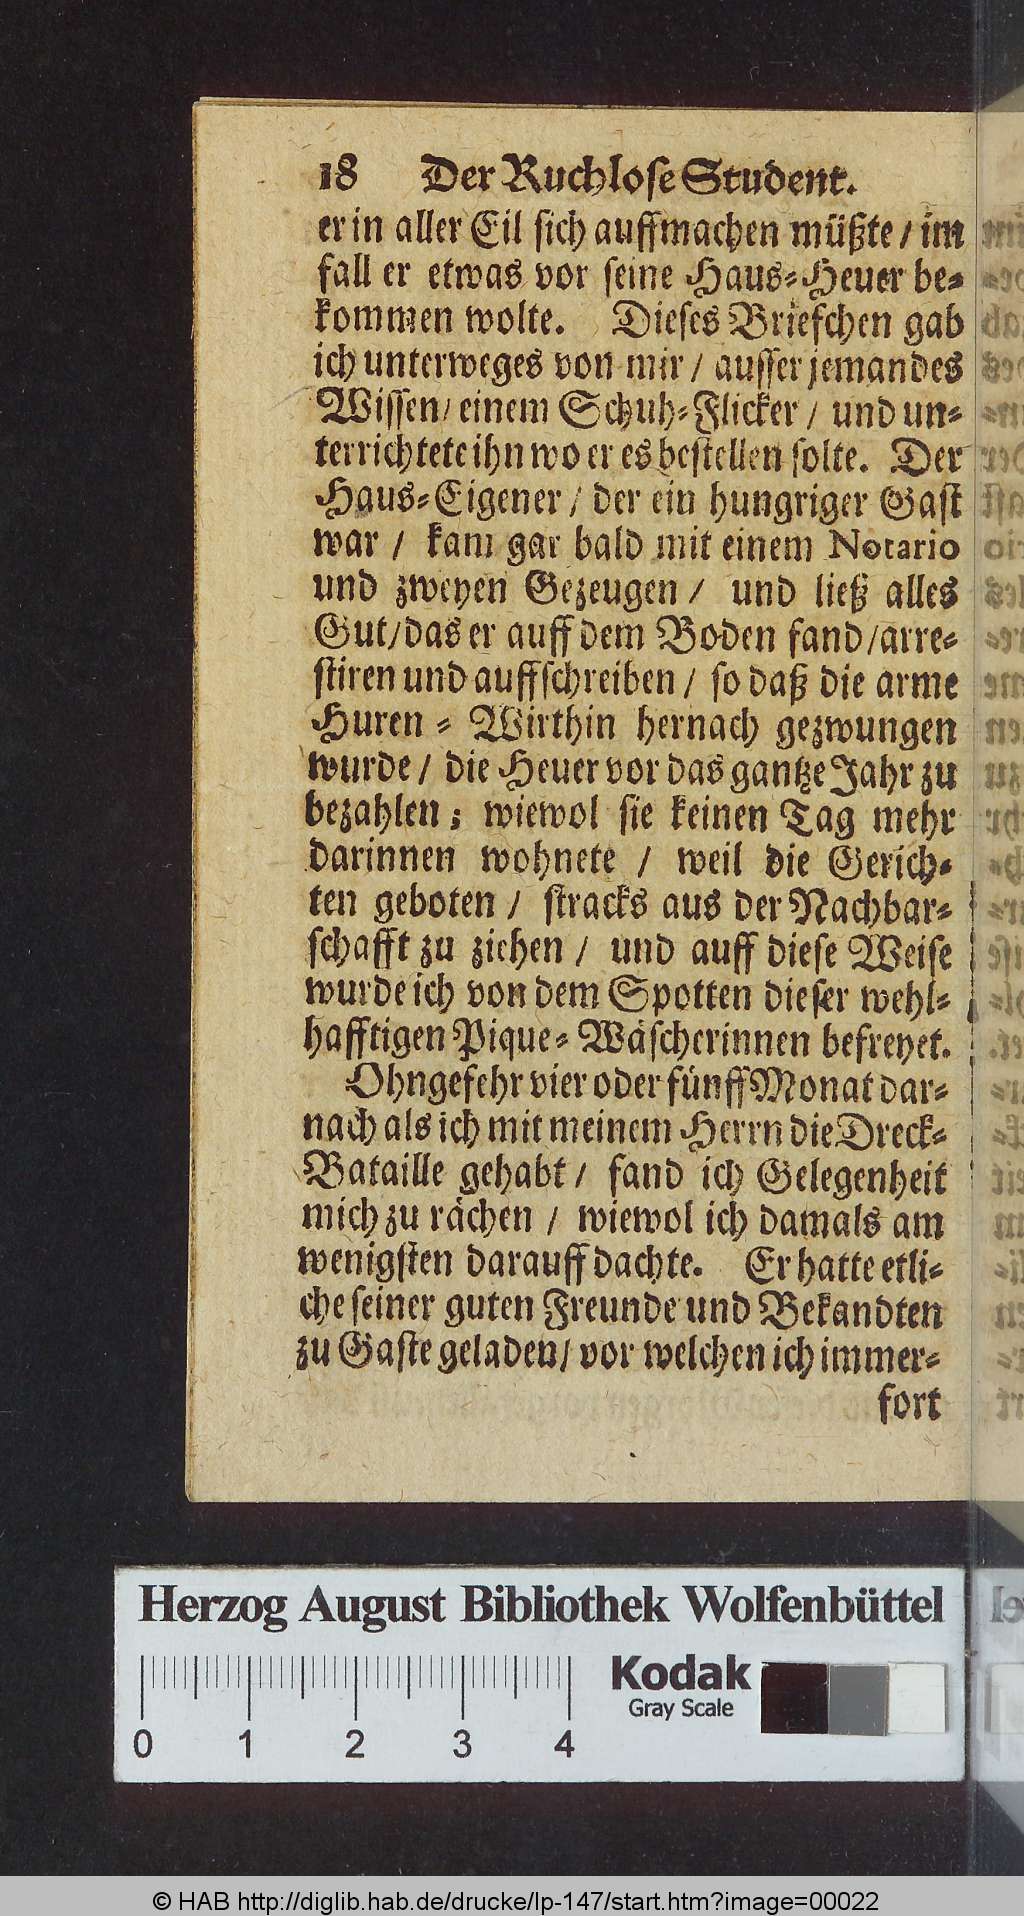 18 Der Ruchlose Student.
er in aller Eil sich auffmachen müßte / im
fall er etwas vor seine Haus-Heuer be-
kommen wolte. Dieses Briefchen gab
ich unterweges von mir / ausser jemandes
Wissen / einem Schuh-Flicker / und un-
terrichtete ihn wo er es bestellen solte. Der
Haus-Eigener / der ein hungriger Gast
war / kam gar bald mit einem Notario
und zweyen Gezeugen / und ließ alles
Gut / das er auff dem Boden fand / arre-
stiren und auffschreiben / so daß die arme
Huren-Wirthin hernach gezwungen
wurde / die Heuer vor das gantze Jahr zu
bezahlen; wiewol sie keinen Tag mehr
darinnen wohnete / weil die Gerich-
ten geboten / stracks aus der Nachbar-
schafft zu ziehen / und auff diese Weise
wurde ich von dem Spotten dieser wehl-
hafftigen Pique-Wäscherinnen befreyet.
Ohngefehr vier oder fünff Monat dar-
nach als ich mit meinem Herrn die Dreck-
Bataille gehabt / fand ich Gelegenheit
mich zu rächen / wiewol ich damals am
wenigsten darauff dachte. Er hatte etli-
che seiner guten Freunde und Bekandten
zu Gaste geladen / vor welchen ich immer-
fort
Herzog August Bibliothek Wolfenbüttel
Kodak
Gray Scale
0 1 2 3 4
© HAB http://diglib.hab.de/drucke/lp-147/start.htm?image=00022